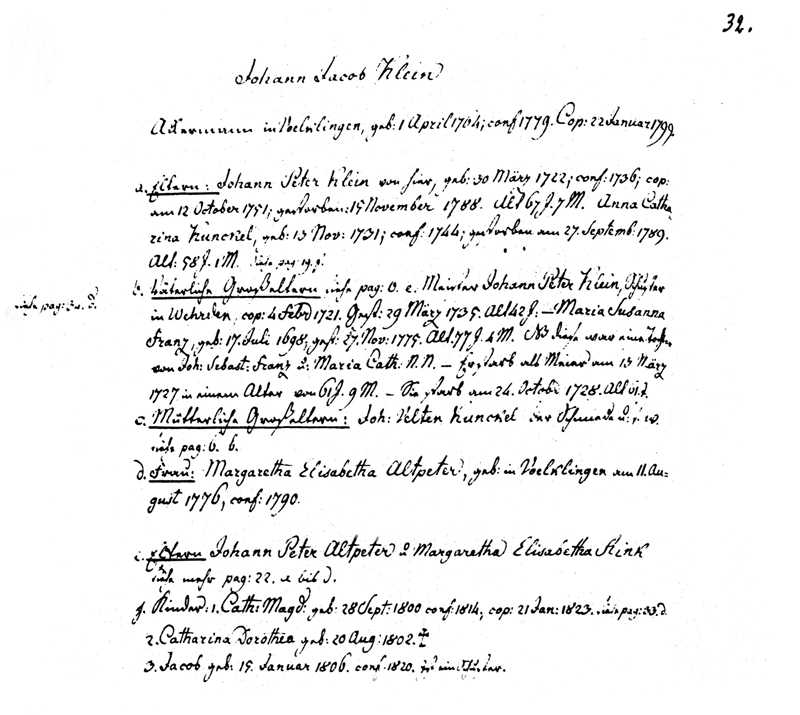 32.
Johann Jacob Klein
Ackermann in Voelklingen, geb: 1 April 1764; conf 1779. Cop: 22 Januar 1799.
a. Eltern: Johann Peter Klein von hier, geb: 30 März 1722; conf: 1736; cop:
am 12 October 1751; gestorben: 15 November 1788. Alt 67 J. 7 M. Anna Catha
rina Kunckel, geb: 13 Nov: 1731; conf: 1744; gestorben am 27. Septemb: 1789.
Alt: 58 J. 1 M. siehe pag: 19. f.
siehe pag: 32. d.
b. Väterliche Großeltern siehe pag: 6. e. Meister Johann Peter Klein, Schuster
in Wehrden, cop: 4 Febr 1721. Gest: 29 März 1735. Alt 42 J. – Maria Susanna
Franz, geb: 17. Juli 1698, gest: 27. Nov: 1775. Alt. 77 J. 4 M. NB diese war eine Tochter
von Joh: Sebast: Franz u. Maria Cath: N. N. – Er starb als Meier am 13 März
1727 in einem Alter von 61 J. 9 M. – Sie starb am 24. Octobr 1728. Alt
c. Mütterliche Großeltern: Joh: Velten Kunckel der Schmede u. s. w.
siehe pag: 6. b.
d. Frau: Margaretha Elisabetha Altpeter, geb: in Voelklingen am 11. Au=
gust 1776, conf: 1790.
e. Eltern Johann Peter Altpeter u Margaretha Elisabetha Stink
siehe mehr pag: 22. a bis d.
f. Kinder: 1. Cath: Magd: geb: 28 Sept: 1800 conf: 1814, cop: 21 Jan: 1823. siehe pag: 33. d.
2. Catharina Dorothea geb: 20 Aug: 1802. ‡
3. Jacob geb: 15. Januar 1806. conf: 1820. ist ein Schuster.